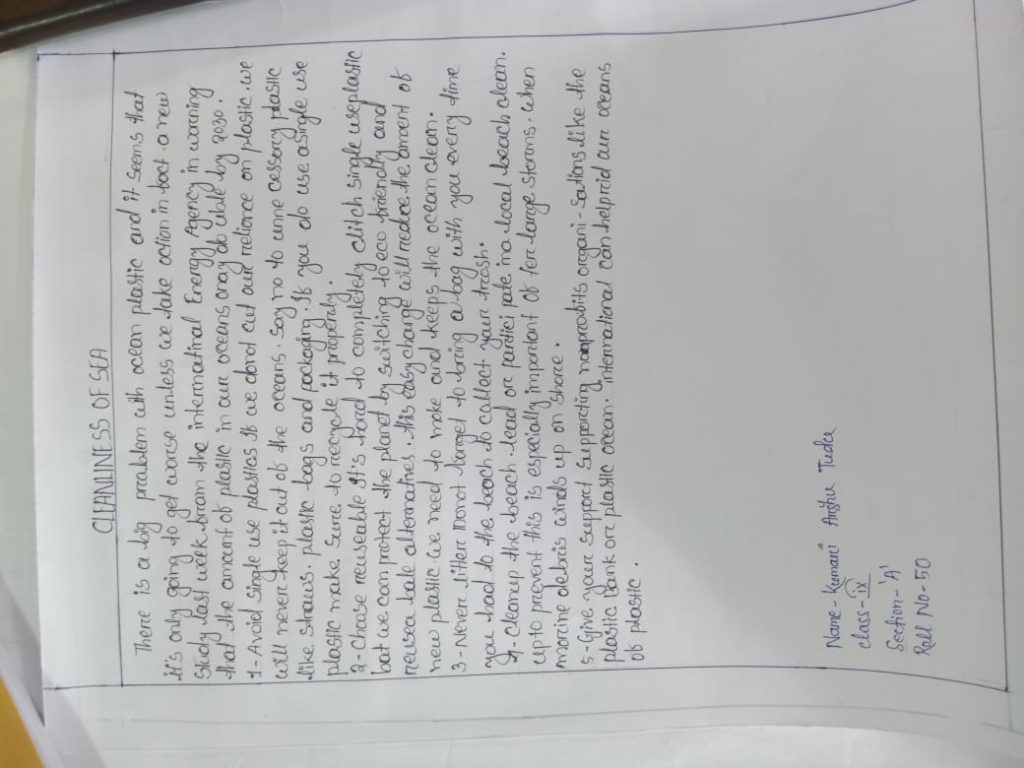 CLEANLINESS OF SEA
There is a big problem with ocean plastic and it seems that
it's only going to get worse unless we take action in boot a new
study last week bram the internatinal Energy Agency in warning
that the amount of plastic in our oceans any double by 2030.
1-Avoid single use plastics It we donot cut our reliance on plastic. we
will never keep it out of the oceans. Say no to unne cessory plastic
like straws. plastic bags and packaging. It you do use a single use
plastic make sure to recycle it properly.
2- choose reuseable It's hard to completely ditch single useplastic
but we can protect the planet by switching to eco friendly and
reusea bale alternatives. this easy change will reduce the amount of
new plastic we need to make and keeps the ocean clean.
3- Never litter Donot torget to bring a bag with you every time
you had to the beach to collect your trash.
4- cleanup the beach. lead or partici pate in a local beach clean.
up to prevent this is especially important of ter large storms. when
marine debris winds up on shore.
5- Give your support supporting nonprobits organi-Sations like the
plastic Bank or plastic ocean. international can help rid our oceans
of plastic.
Name- Kumari Anshu Tudu
class- IX
Section- 'A'
Roll No- 50